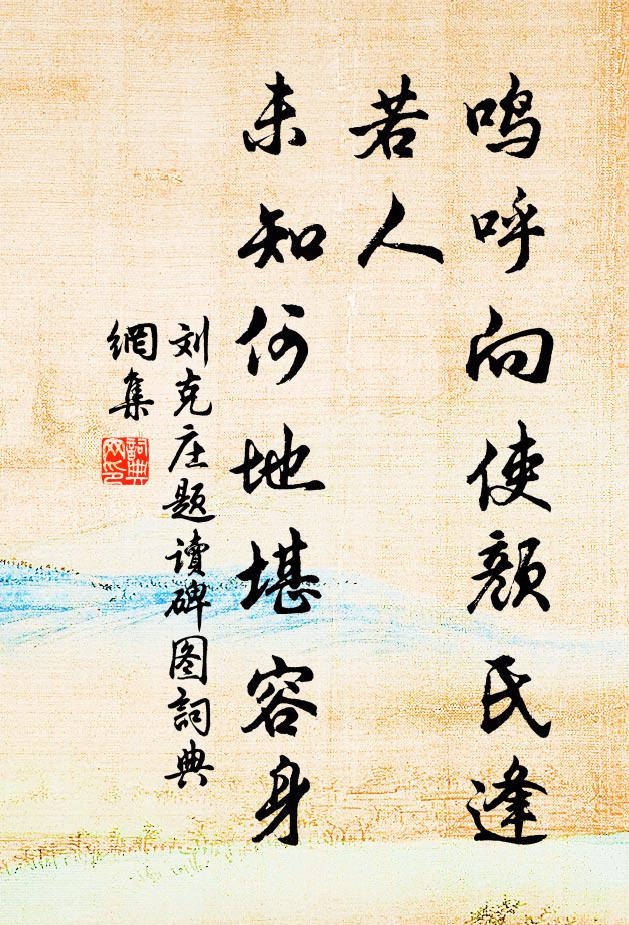 鸣呼向使颜氏逢
若人
未知何地堪容身
刘克庄题读碑图詞典
網集
詞典
网印